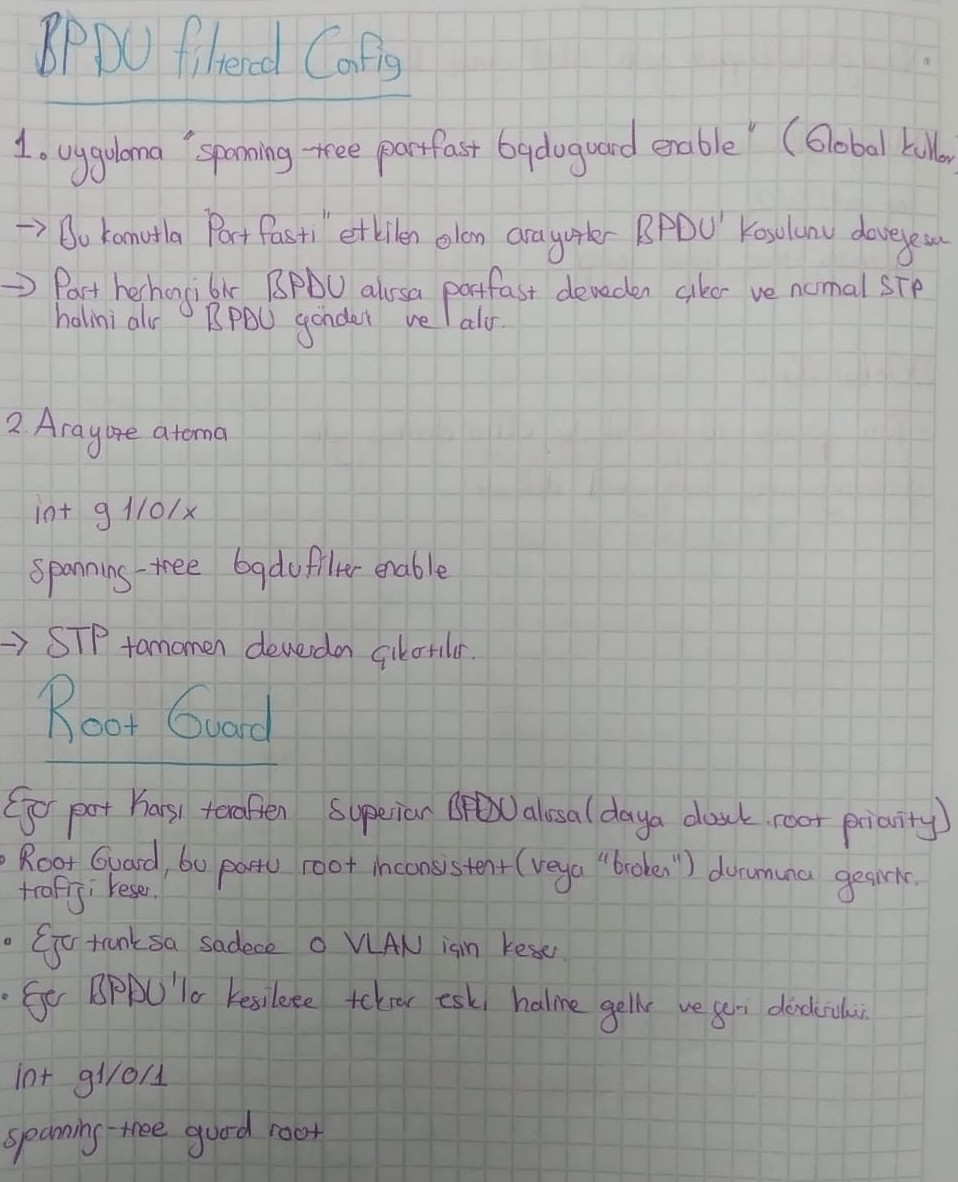 BPDU filtered Config
1. uygulama "spanning-tree portfast bqduguard enable" (Global kullan
→ Bu komutla "Port fasti" etkilen olan arayuzler BPDU'
→ Port herhangi bir BPDU alırsa portfast devreden çıkar ve normal STP
halini alır BPDU gönderir ve alır.
2. Arayüze atama
int g 1/0/x
spanning-tree bqdufilter enable
→ STP tamamen devreden çıkartılır.
Root Guard
Eğer port karşı taraften Superior BPDU alırsa (daya düşük root priority)
• Root Guard, bu portu root inconsistent (veya "broken") durumuna geçirir.
trafiği keser.
• Eğer trunksa sadece o VLAN için keser.
• Eğer BPDU'lar kesilirse tekrar eski haline gelir ve geri döndürülür.
int g1/0/1
spanning-tree guard root